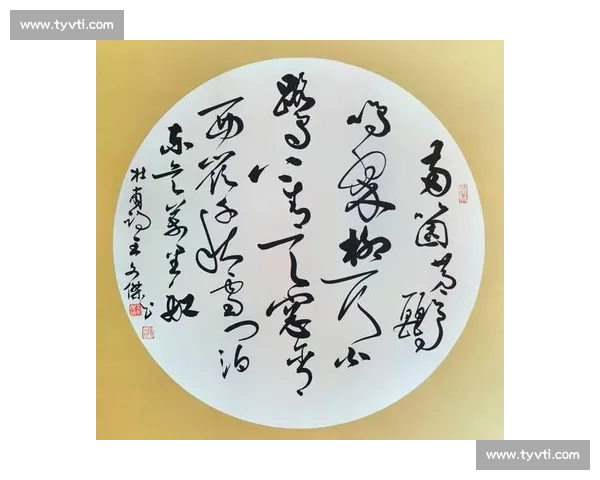 www.tyvti.com
兩箇黄鸝
鳴翠柳一行白
鷺上青天窗含
西嶺千秋雪門泊
東吴萬里船
杜甫詩王文傑书
www.tyvti.com